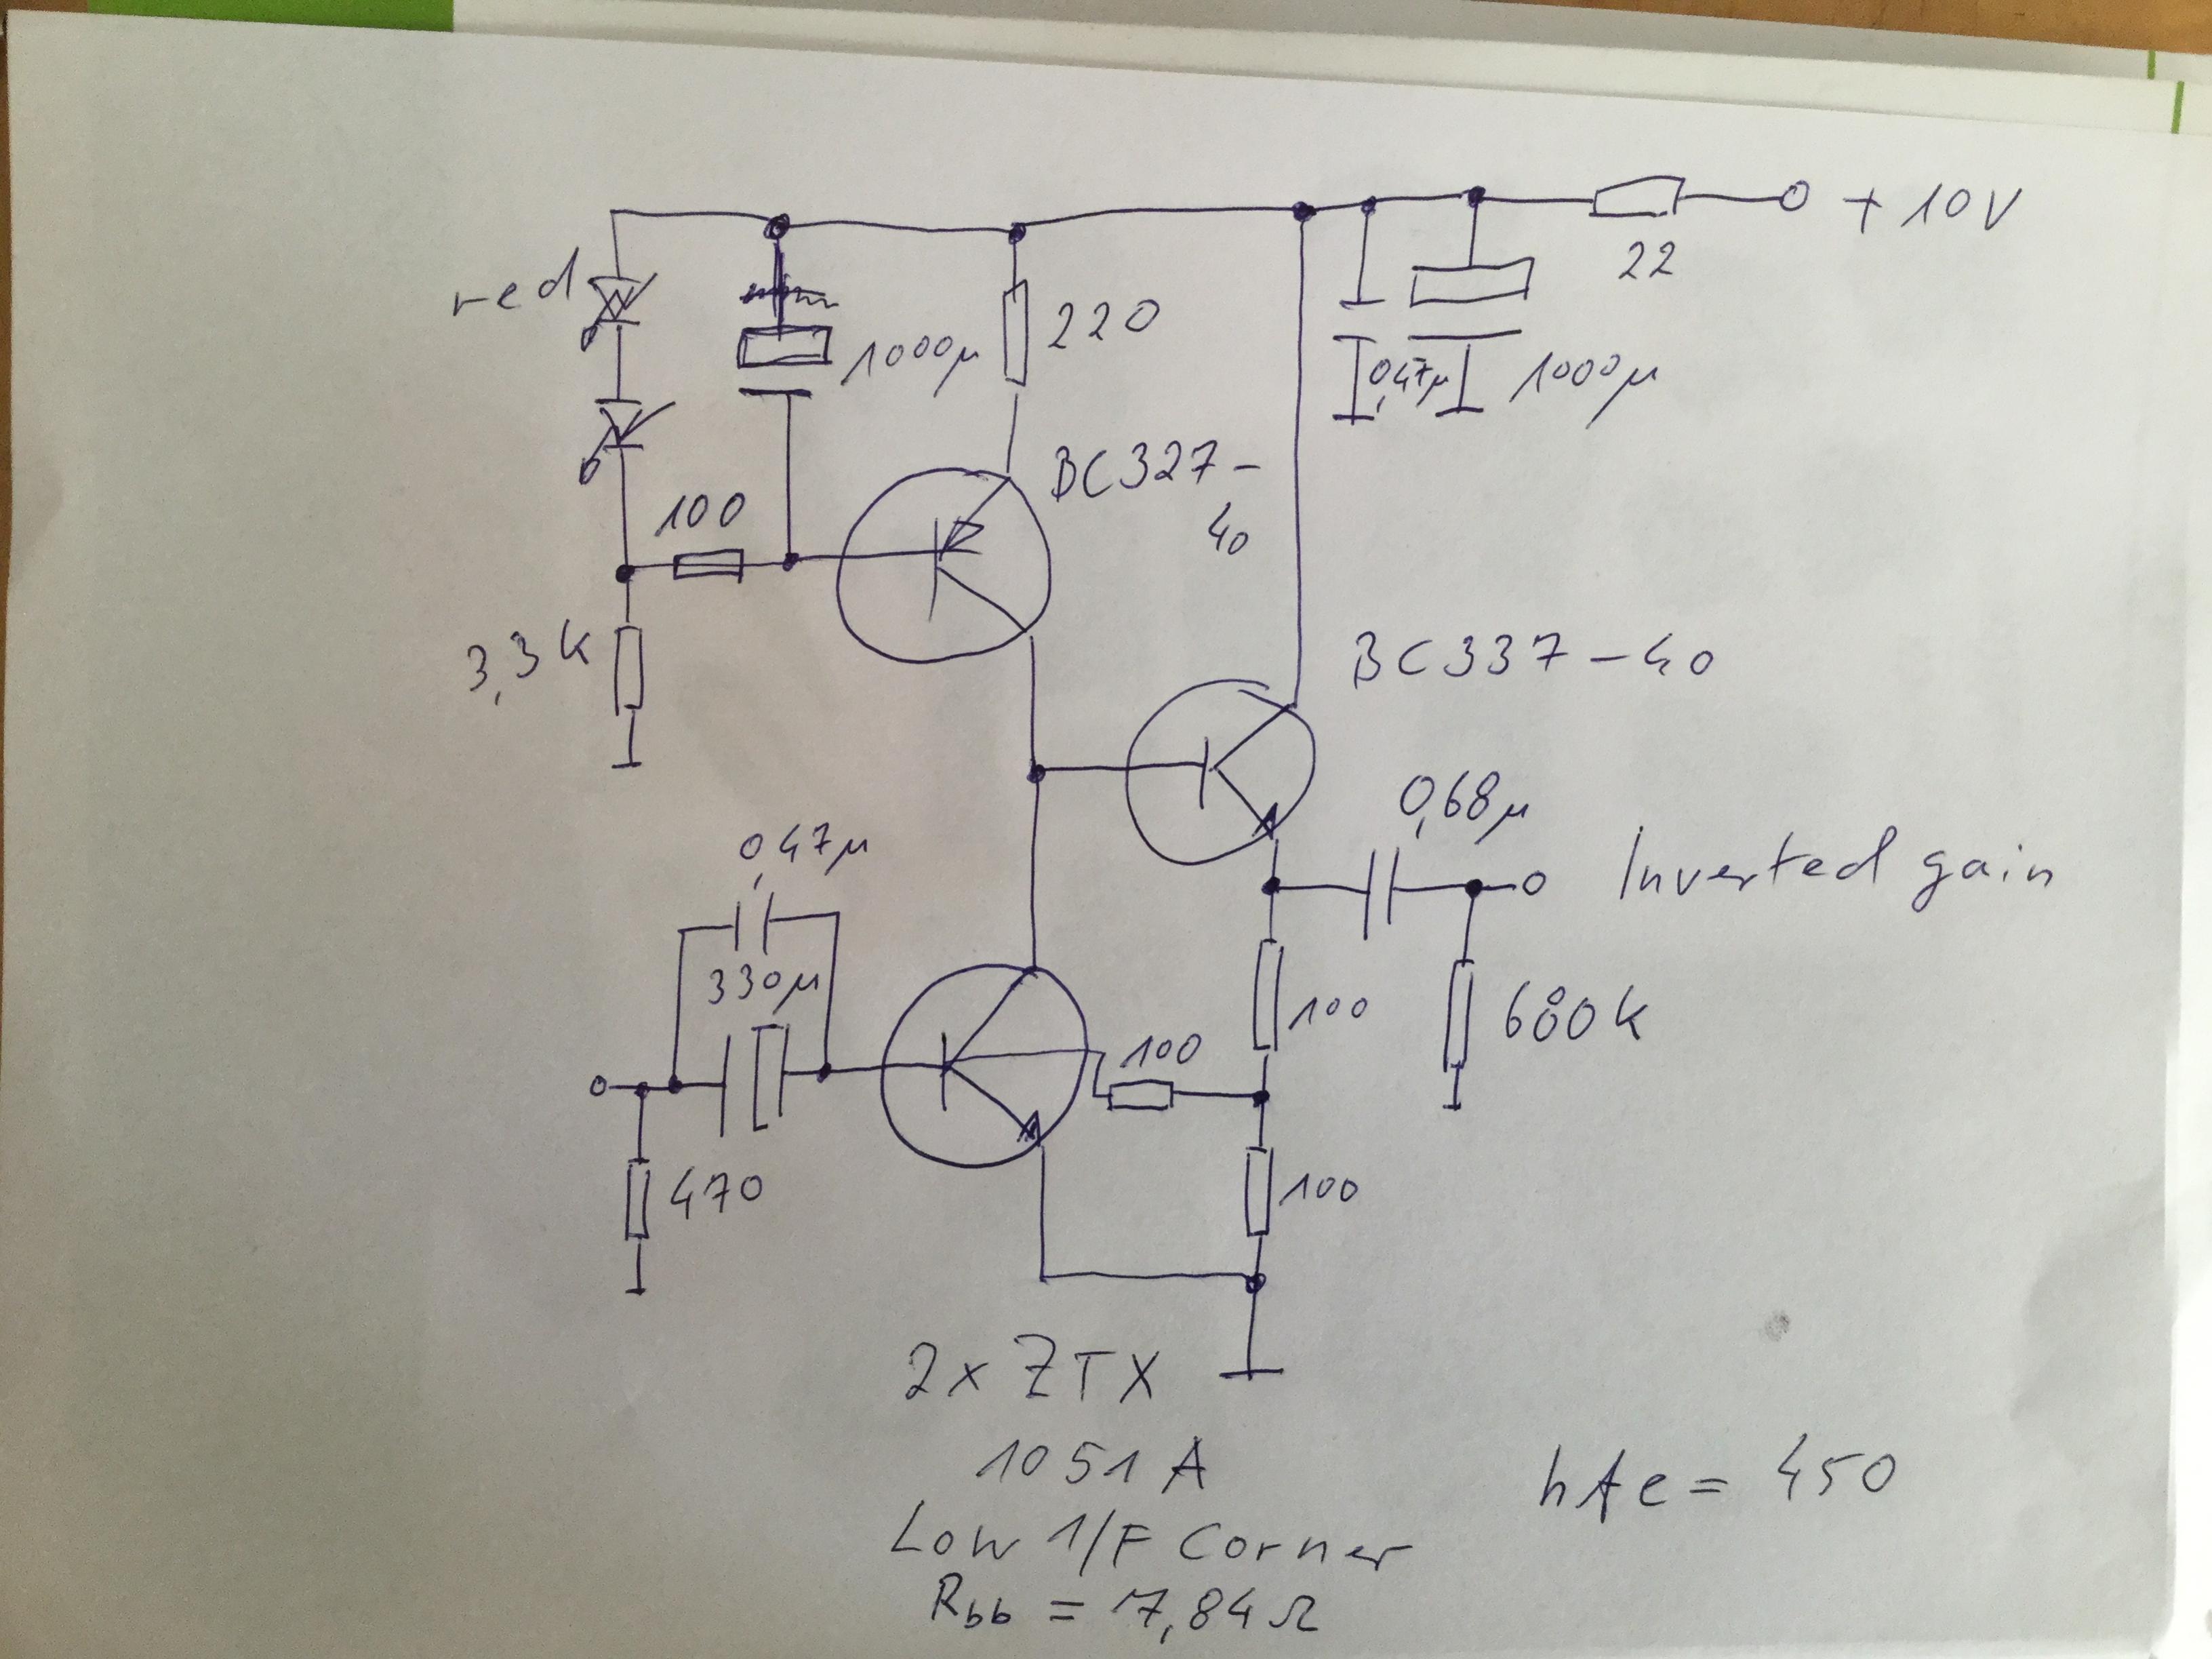 + 10V
22
red
1000µ
220
0,47µ
1000µ
BC327-
40
100
3,3k
BC337-40
0,68µ
0,47µ
Inverted gain
330µ
100
680k
100
470
100
2x ZTX
1051 A
hfe = 450
Low 1/F Corner
Rbb = 7,84Ω